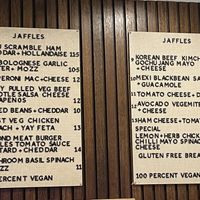 JAFFLES
SCRAMBLE HAM
EDAR + HOLLANDAISE 115
BOLOGNESE GARLIC
TER + MOZZ 105
PERONI MAC + CHEESE 12
Y PULLED VEG BEEF
OTLE SALSA CHEESE
APENOS 12
ED BEANS + CHEDDAR 10
ST VEG CHICKEN
PINACH + VAY FETA 13
OND MEAT BURGER
LES TOMATO SAUCE
TARD + CHEDDAR 14
SHROOM BASIL SPINACH
MOZZ 11
PERCENT VEGAN
JAFFLES
KOREAN BEEF KIMCH
GOCHUJANG MAYO
+ CHEESE
MEXI BLACKBEAN SA
+ GUACAMOLE
TOMATO CHEESE + D
AVOCADO VEGEMITE
+ CHEESE
HAM CHEESE + TOMAT
SPECIAL
LEMON + HERB CHICK
CHILLI MAYO SPINAC
+ CHEESE
GLUTEN FREE BREA
100 PERCENT VEGAN